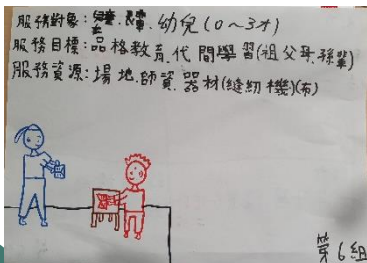 服務對象:兒童、長者、幼兒(0~3才)
服務目標:品格教育、代間學習(祖父母、孫輩)
服務資源:場地、師資、器材(縫紉機)(布)
第6組